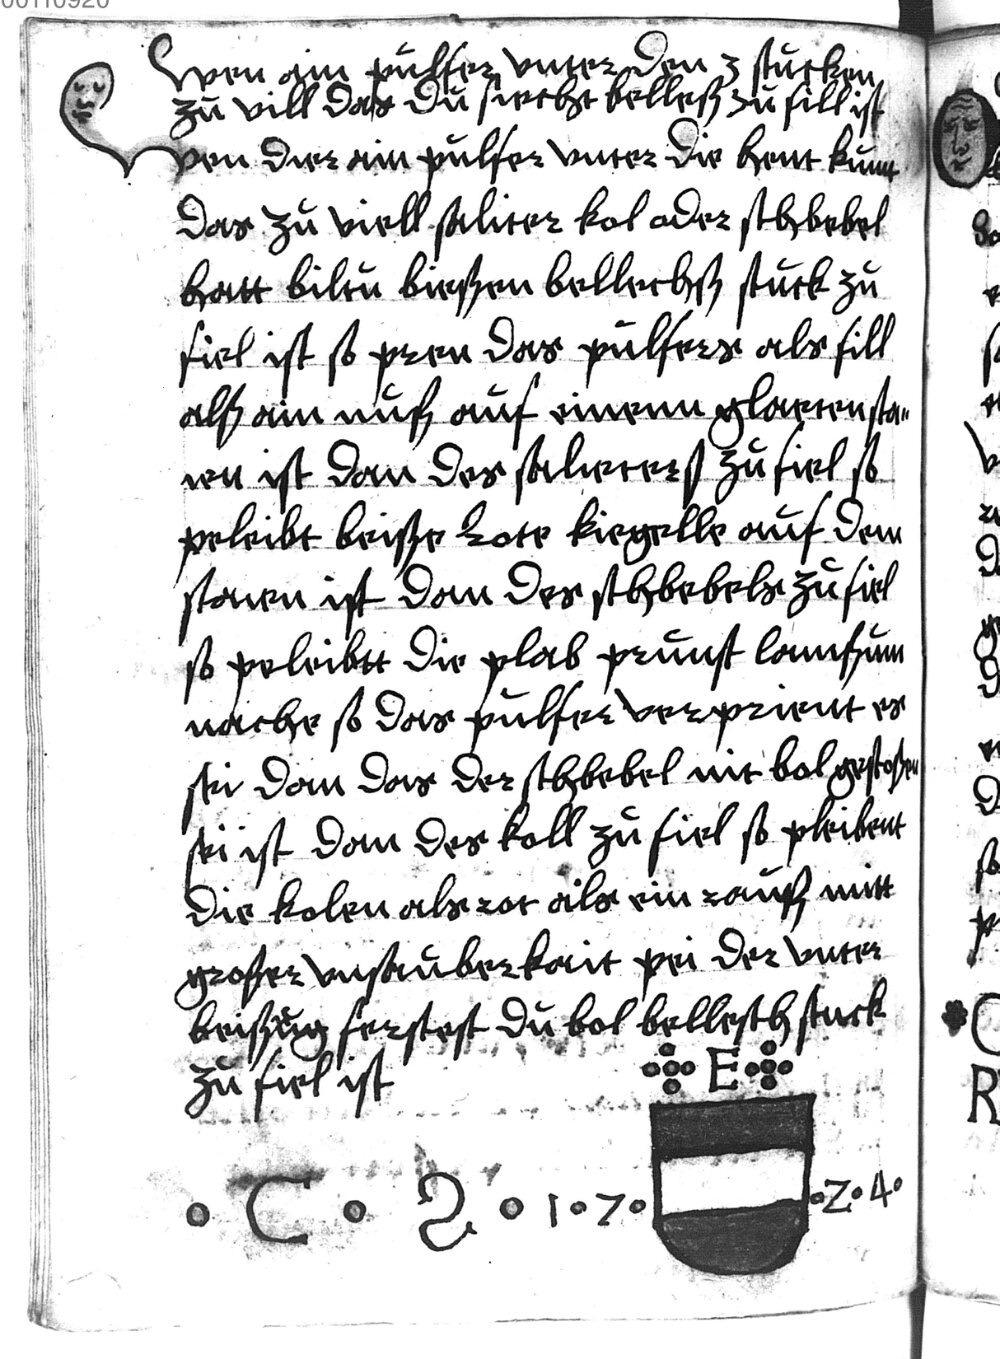 Wen ain pulfer vnter den 3 stucken
zu vill das du siechst belleß zu fill ist
wen dier ain pulfer vnter die hent kumt
das zu viell saliter kol oder sthbebel
hatt biltu bießen bellechß stuck zu
fiel ist so pren das pulfers als fill
alß ain nuß auf einenn glaeten sta„
ien ist dan des salieters zu fiel so
peleibt beiße rote kiegelle auf dem
staien ist dan des sthbebels zu fiel
so peleibtt die plab prunst lanckum
nache so das pulfer verprient es
sei dan das der sthbebel nit bol gestoßen
sei ist dan des koll zu fiel so pleibent
die kolen als rot als ein rauß mitt
großer vnsauberkait pei der vnter
beißug ferstest du bol bellesth stuck
zu fiel ist
E
• C • S • 1 • 7 • • 2 • 4 •